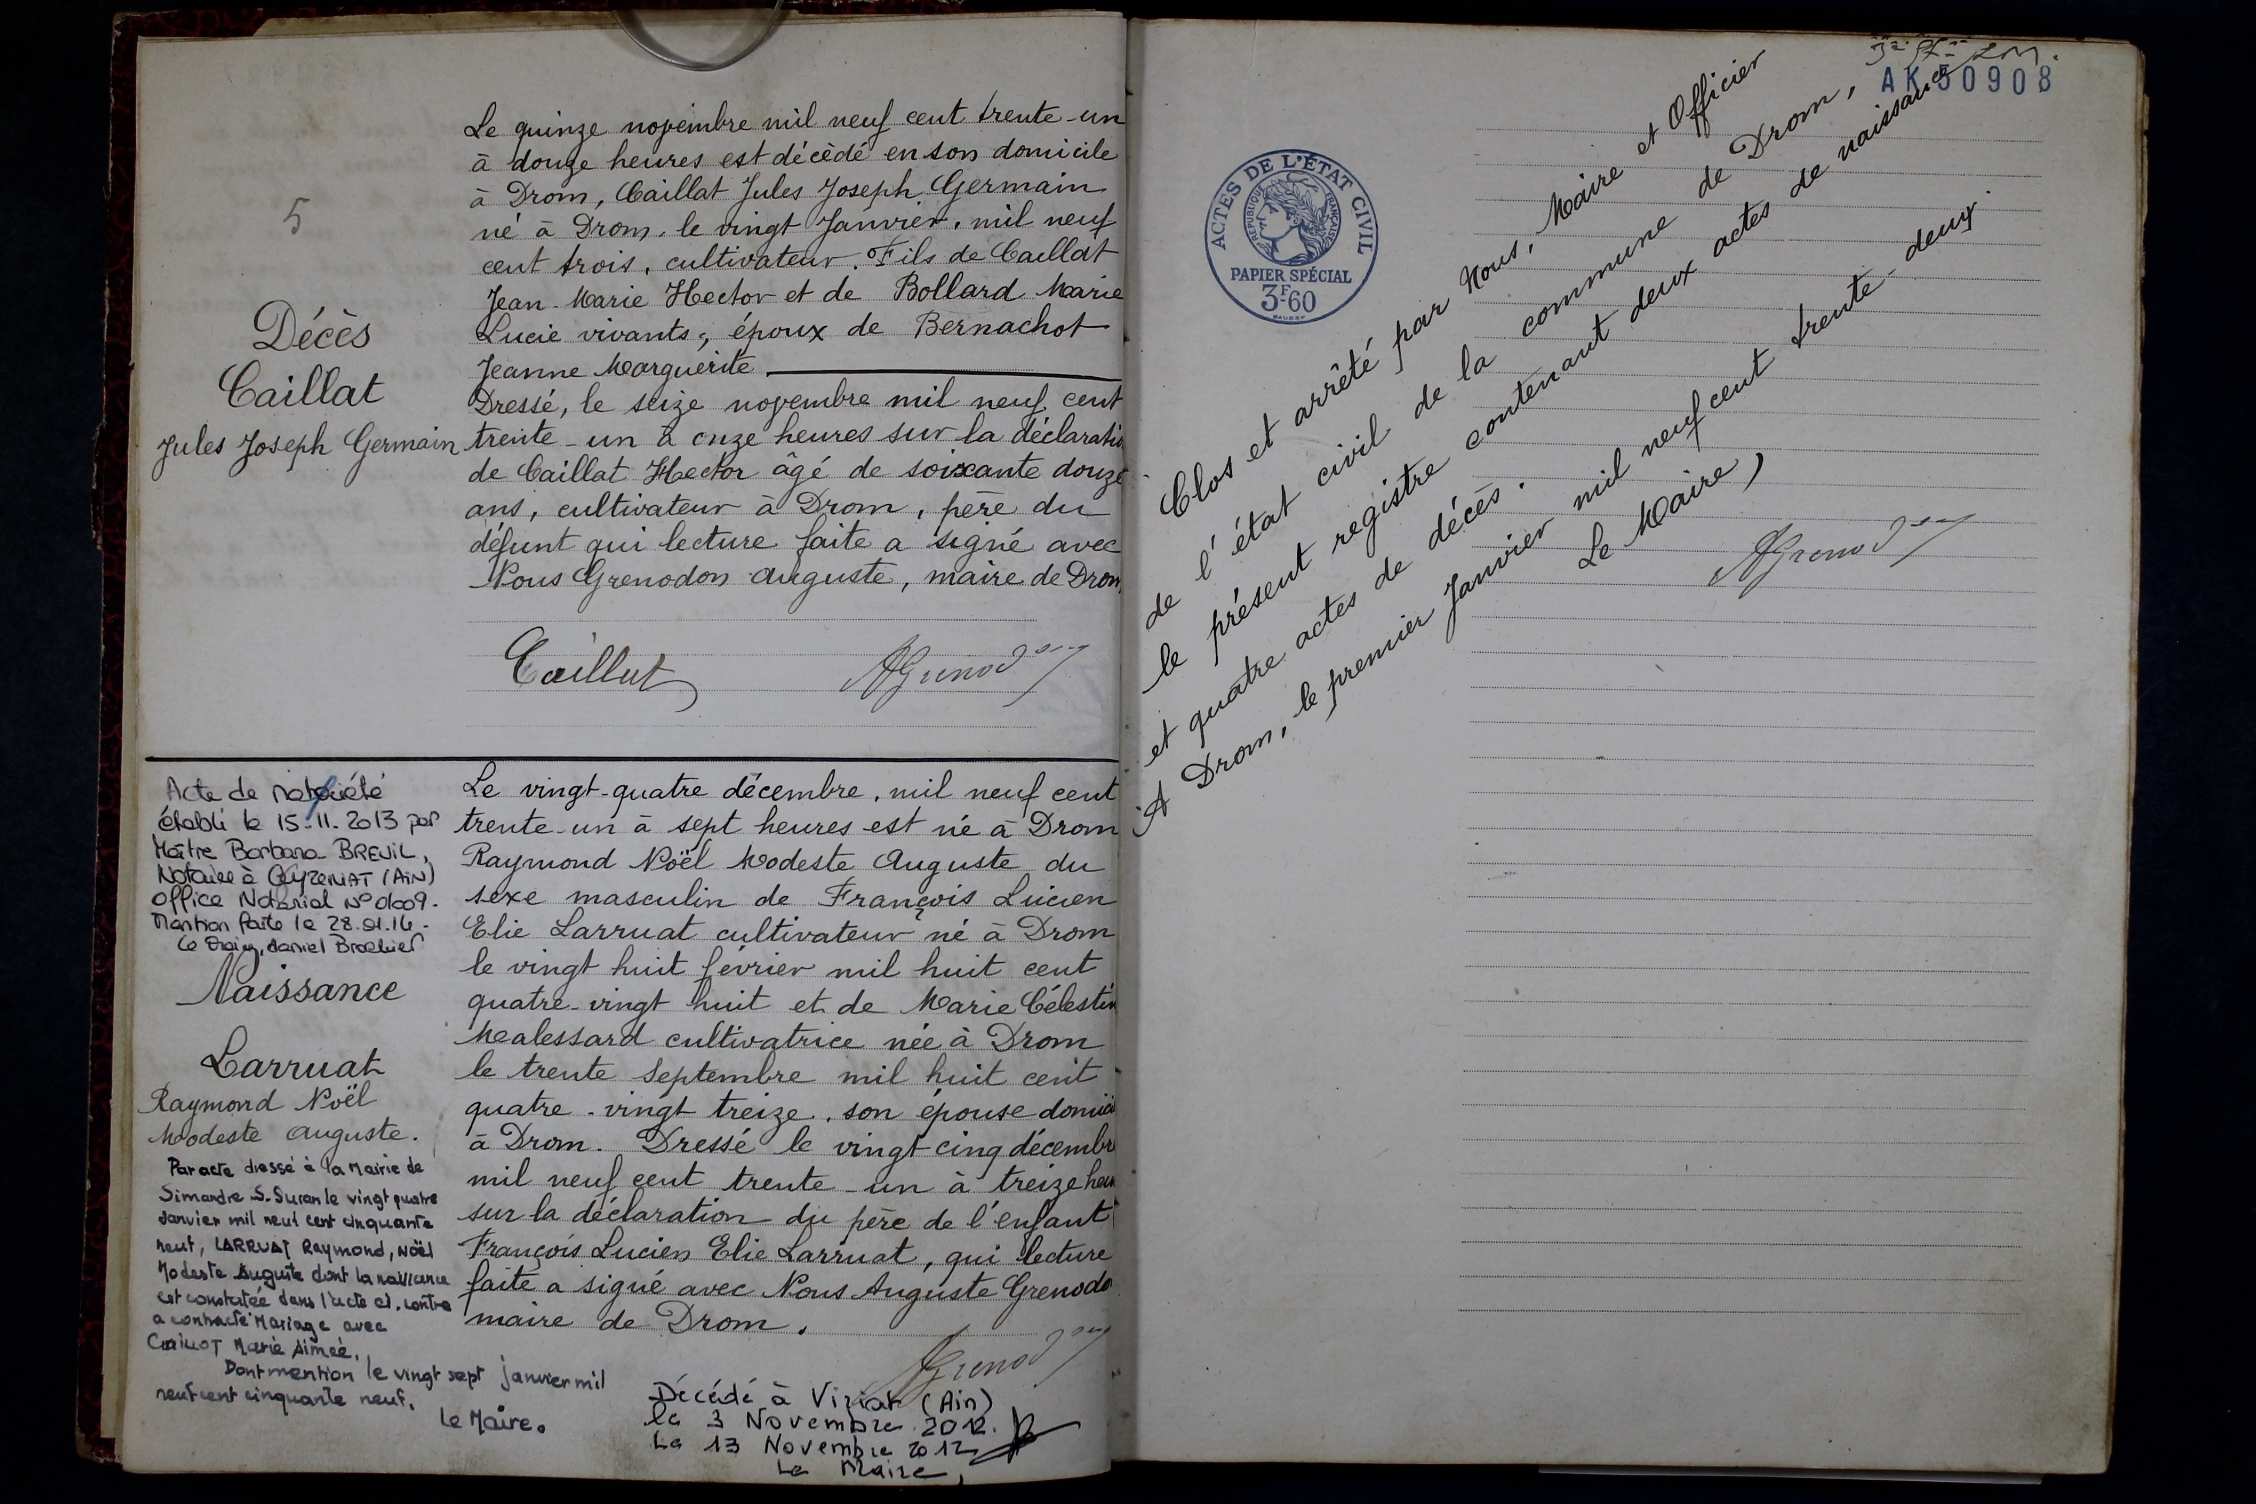 5
Décès
Caillat
Jules Joseph Germain
Le quinze novembre mil neuf cent trente-un
à douze heures est décédé en son domicile
à Drom, Caillat Jules Joseph Germain
né à Drom, le vingt Janvier, mil neuf
cent trois, cultivateur. Fils de Caillat
Jean-Marie Hector et de Bollard Marie
Lucie vivants, époux de Bernachot
Jeanne Marguerite
Dressé, le seize novembre mil neuf cent
trente-un à onze heures sur la déclaratio
de Caillat Hector âgé de soixante douze
ans, cultivateur à Drom, père du
défunt qui lecture faite a signé avec
Nous Grenodon Auguste, maire de Drom
Caillat AGrenodon
Acte de notoriété
établi le 15-11-2013 par
Maître Barbara BREUIL,
Notaire à CEYZERIAT (AIN)
Office Notarial N° 01009.
Mention faite le 28.01.14.
Le Maire, Daniel
Naissance
Larruat
Raymond Noël
Modeste Auguste.
Par acte dressé à la Mairie de
Simandre S. Suran le vingt quatre
Janvier mil neuf cent cinquante
neuf, LARRUAT Raymond, Noël
Modeste Auguste dont la naissance
est constatée dans l'acte ci-contre
a contracté Mariage avec
Marie Aimée.
Dont mention le vingt sept janvier mil
neuf cent cinquante neuf.
Le Maire.
Le vingt-quatre décembre, mil neuf cent
trente-un à sept heures est né à Drom
Raymond Noël Modeste Auguste du
sexe masculin de François Lucien
Elie Larruat cultivateur né à Drom
le vingt huit février mil huit cent
quatre-vingt huit et de Marie Célestin
Malessard cultivatrice née à Drom
le trente Septembre mil huit cent
quatre-vingt treize, son épouse domici
à Drom. Dressé le vingt-cinq décembre
mil neuf cent trente-un à treize heu
sur la déclaration du père de l'enfant
François Lucien Elie Larruat, qui lecture
faite a signé avec Nous Auguste Grenodo
maire de Drom.
AGrenodon
Décédé à Viriat (Ain)
le 3 Novembre 2012.
Le 13 Novembre 2012
Le Maire,
AK50908
ACTES DE L'ÉTAT CIVIL
RÉPUBLIQUE FRANÇAISE
PAPIER SPÉCIAL
3F-60
Clos et arrêté par Nous, Maire et Officier
de l'état civil de la commune de Drom,
le présent registre contenant deux actes de naissance
et quatre actes de décès.
A Drom, le premier Janvier mil neuf cent trente-deux.
Le Maire,
AGrenodon